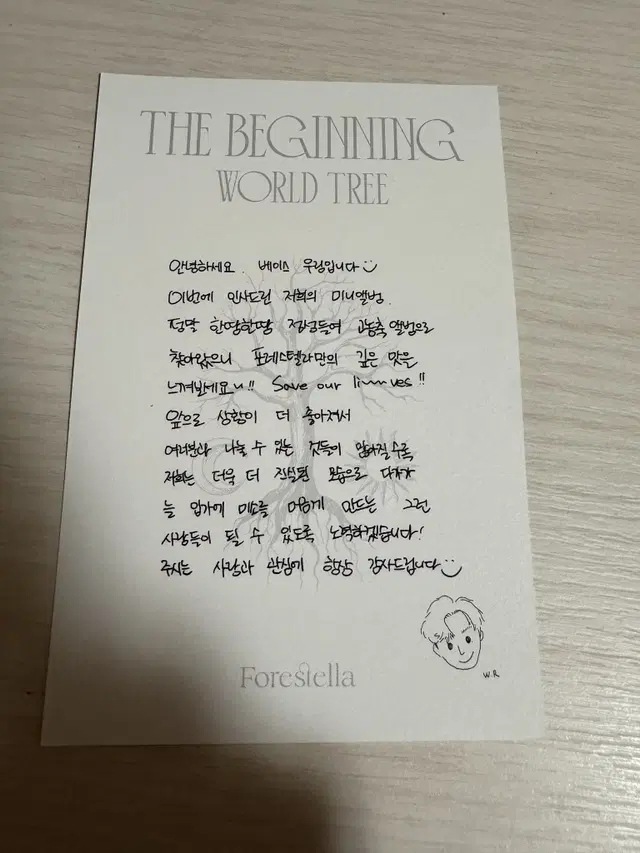 THE BEGINNING
WORLD TREE
안녕하세요. 베이스 우림입니다
이번에 인사드린 저희의 미니앨범.
정말 한땀한땀 정성들여 고농축 앨범으로
찾아왔으니 포레스텔라만의 깊은 맛을
느껴보세요!! Save our li~~ves!!
앞으로 상황이 더 좋아져서
여러분과 나눌 수 있는 것들이 많아질수록
저희는 더욱 더 진실된 모습으로 다가가
늘 입가에 미소를 머금게 만드는 그런
사람들이 될 수 있도록 노력하겠습니다!
주시는 사랑과 관심에 항상 감사드립니다
W.R
Forestella